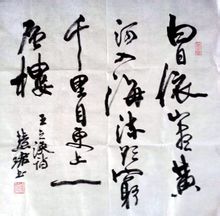 白日依山尽黄
河入海流欲窮
千里目更上一
層樓
王之涣诗